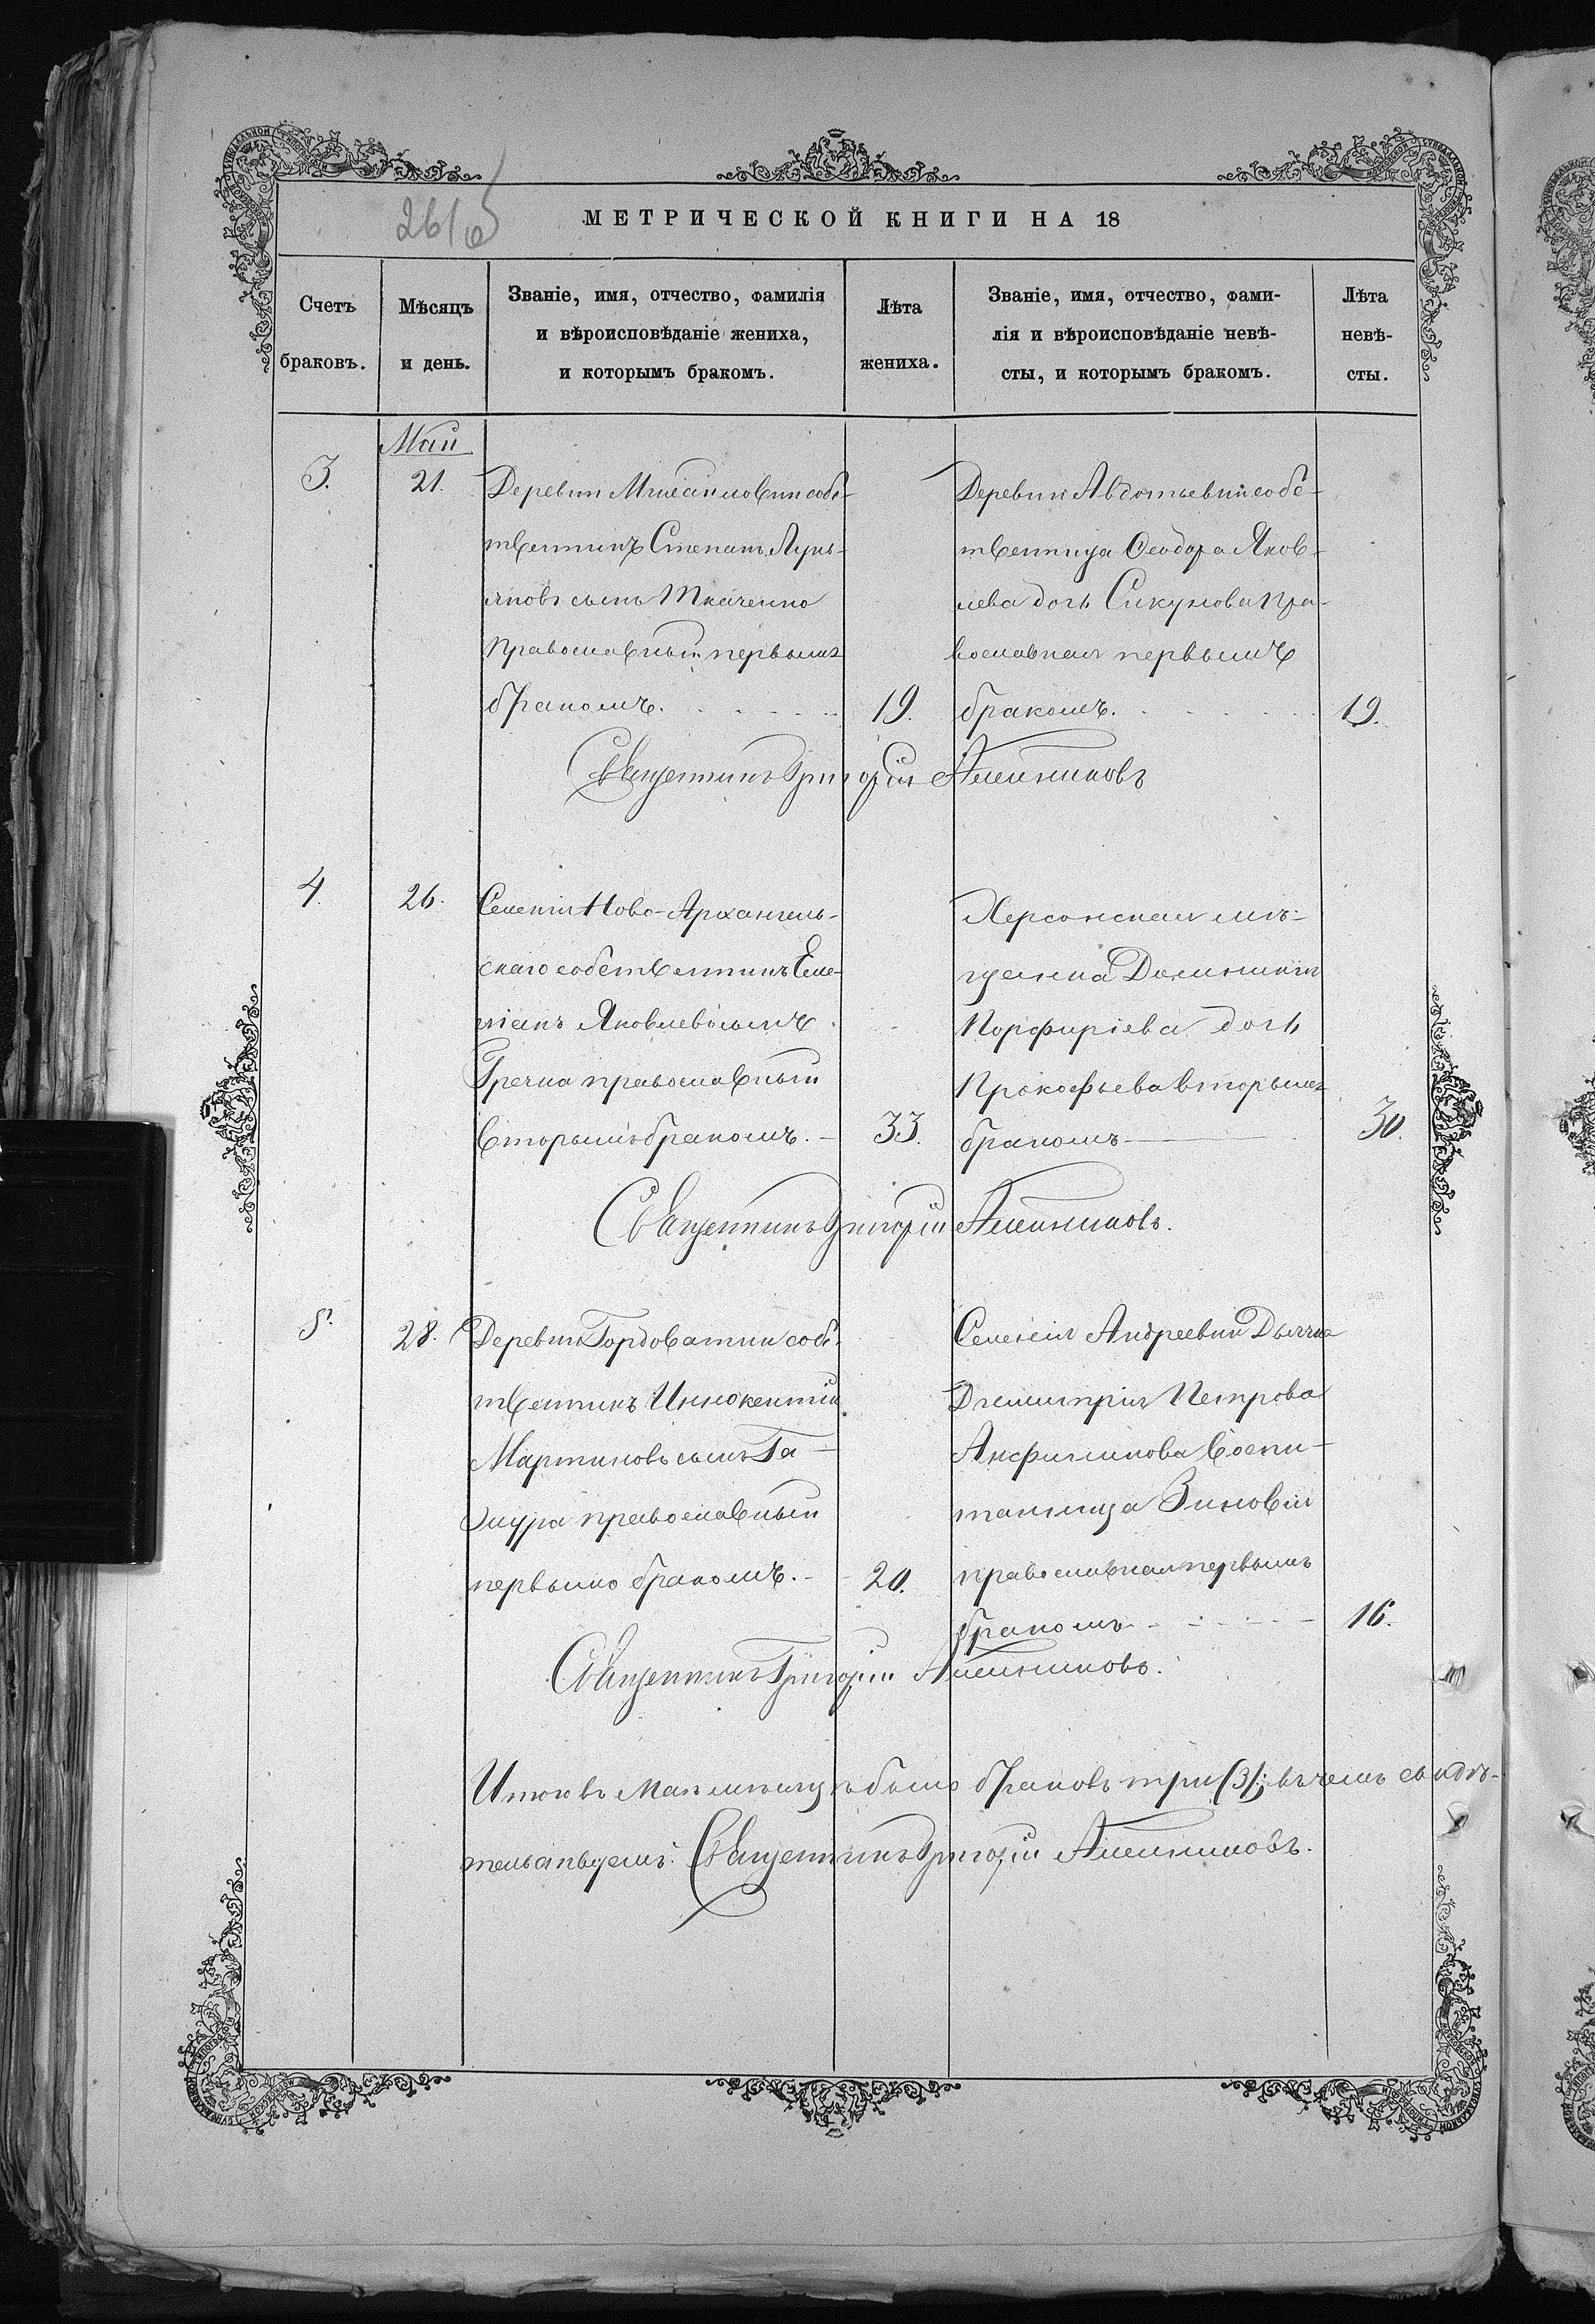 261б
МЕТРИЧЕСКОЙ КНИГИ НА 18
Счетъ браковъ.
Мѣсяцъ и день.
Званіе, имя, отчество, фамилія
и вѣроисповѣданіе жениха,
и которымъ бракомъ.
Лѣта жениха.
Званіе, имя, отчество, фами-
лія и вѣроисповѣданіе невѣ-
сты, и которымъ бракомъ.
Лѣта невѣ-
сты.
Май
3.
21.
Деревни Михайловки собс-
твенникъ Стефанъ Лукь-
яновъ сынъ Ткаченко
православный первымъ
бракомъ.
19.
Деревни Авдотьевки собс-
твенница Ѳеодора Яков-
лева дочь Сикунова пра-
вославная первымъ
бракомъ.
19.
Священникъ Григорій
4.
26.
Селенія Ново-Архангель-
скаго собственникъ Еме-
ліанъ Яковлевъ сынъ
Гречка православный
вторымъ бракомъ.
33.
Херсонская мѣ-
щанка Домникія
Порфиріева дочь
Прокофьева вторымъ
бракомъ
30.
Священникъ Григорій
5.
28.
Деревни Гордоватки собс-
твенникъ Иннокентій
Мартиновъ сынъ Га-
православный
первымъ бракомъ.
20.
Селенія Андреевки Дьячка
Димитрія Петрова
воспи-
танница Зиновія
православная первымъ
бракомъ
16.
Священникъ Григорій
Итого въ Маѣ мѣсяцѣ было браковъ три (3); въ чемъ свидѣ-
тельствуемъ: Священникъ Григорій